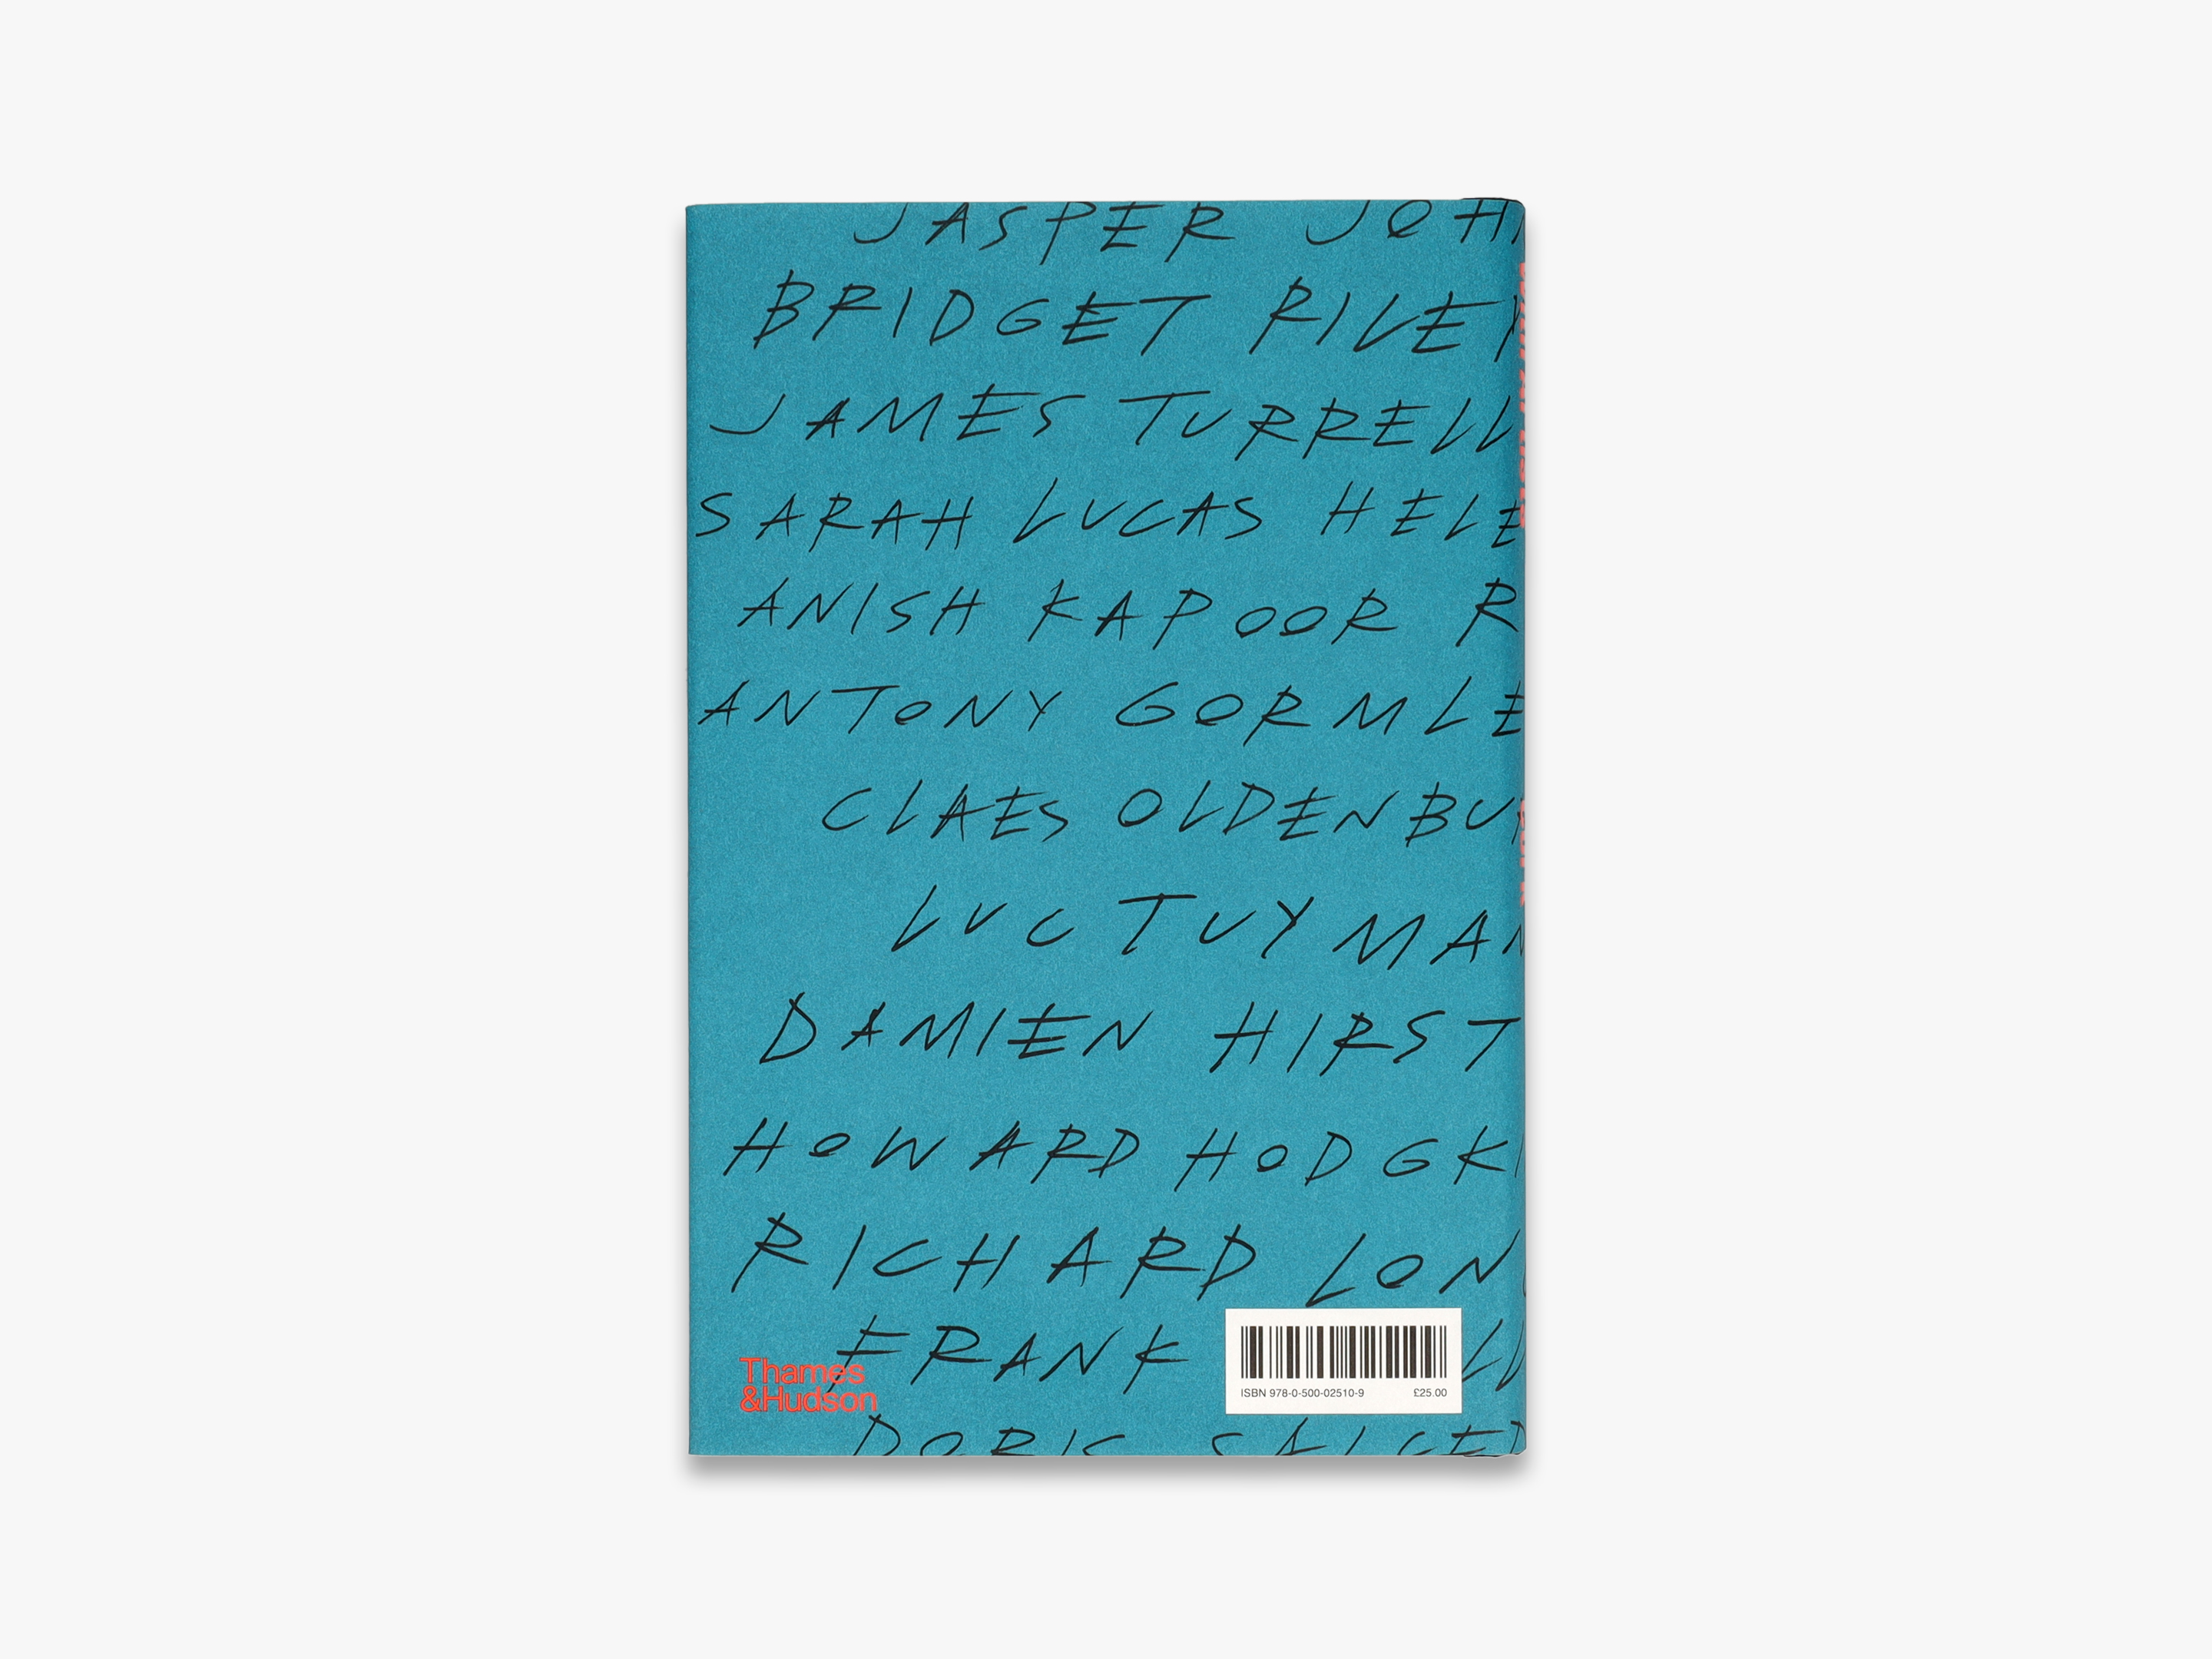 JASPER JOH
BRIDGET RILEY
JAMES TURRELL
SARAH LUCAS HELE
ANISH KAPOOR R
ANTONY GORMLE
CLAES OLDENBU
LUC TUYMAN
DAMIEN HIRST
HOWARD HODGKI
RICHARD LONG
FRANK
Thames
&Hudson
ISBN 978-0-500-02510-9 £25.00
DORIS SALCED